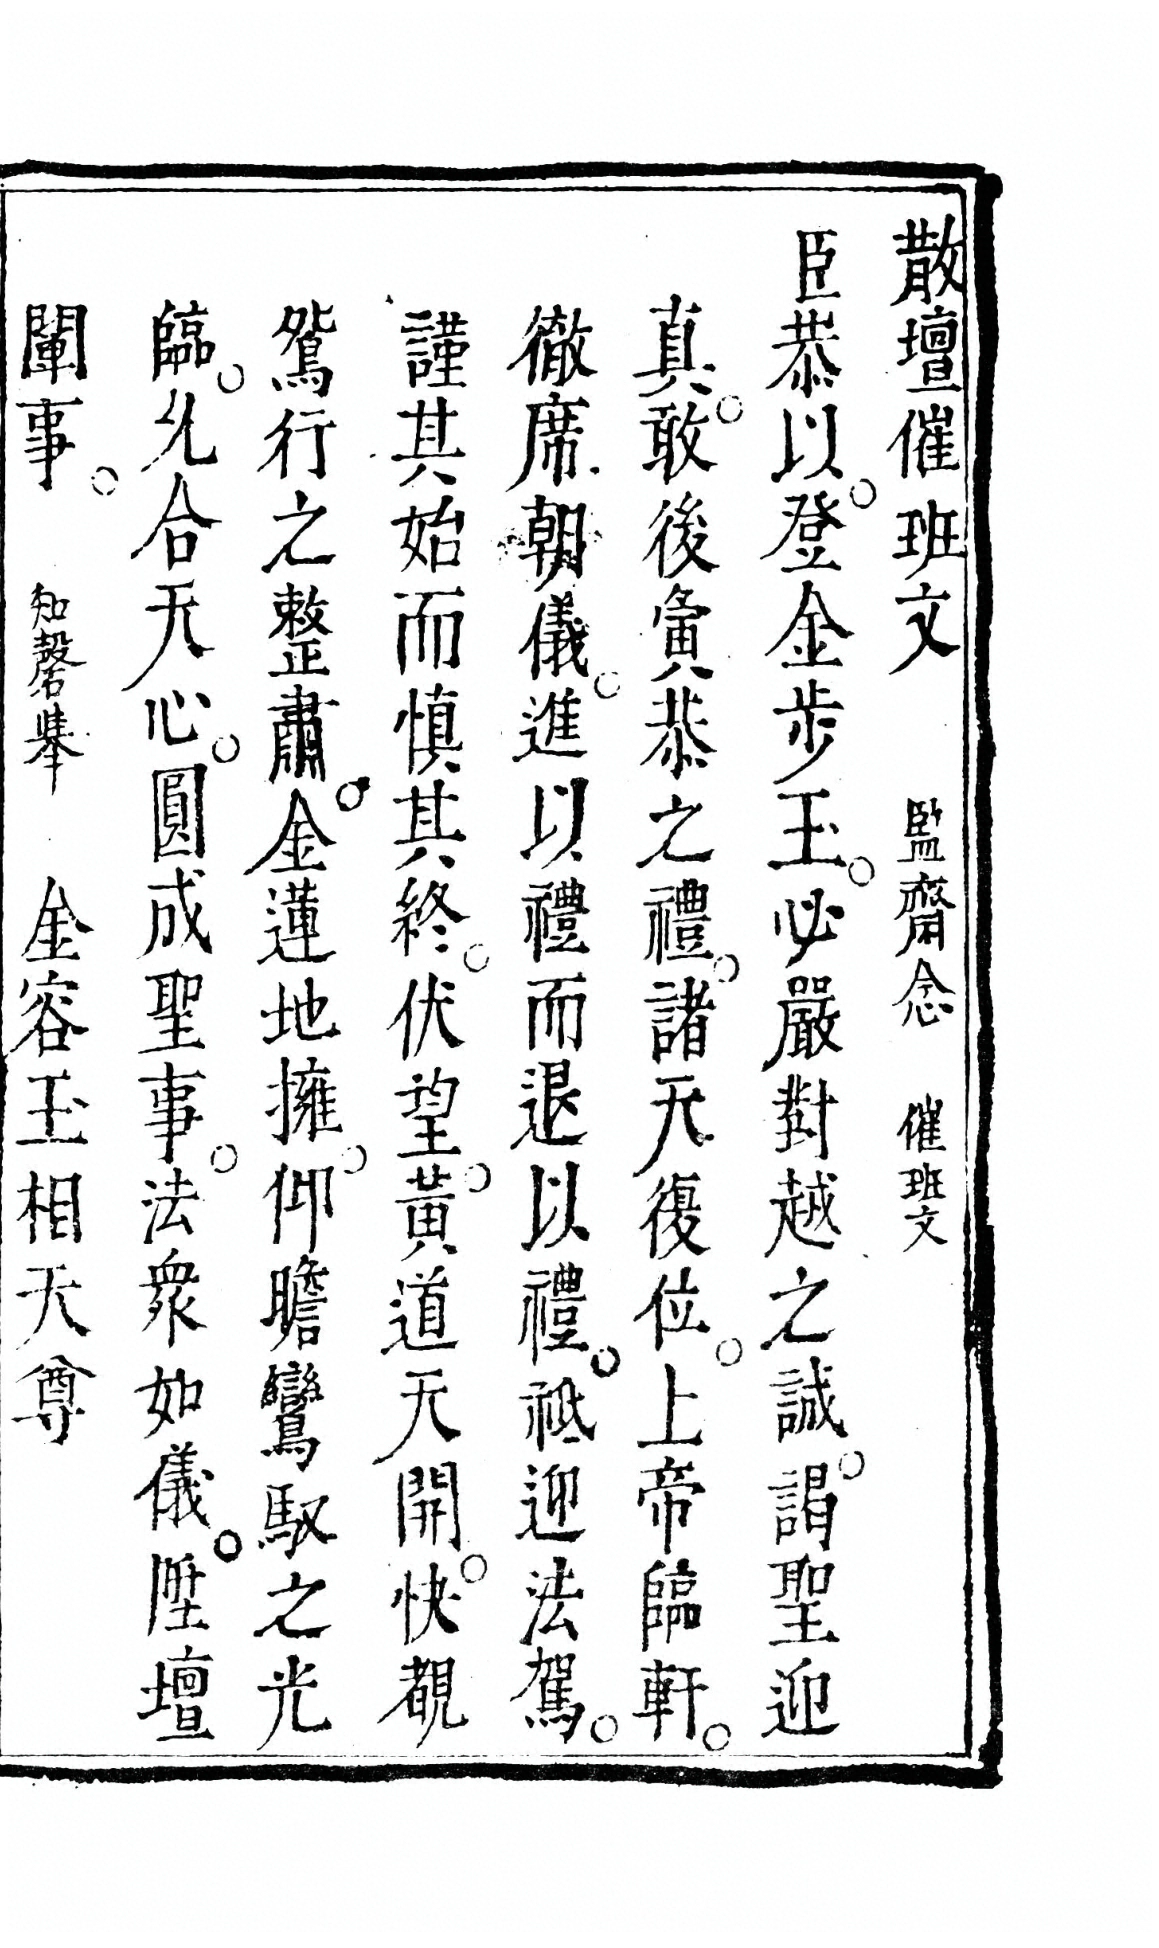 散壇催班文 監齋念 催班文
臣恭以。登金步玉。必嚴對越之誠。謁聖迎
真。敢後寅恭之禮。諸天復位。上帝臨軒。
徹席朝儀。進以禮而退以禮。祗迎法駕。
謹其始而慎其終。伏望。黃道天開。快覩
鴛行之整肅。金蓮地擁。仰瞻鸞馭之光
臨。允合天心。圓成聖事。法衆如儀。陞壇
闡事。 知磬舉 金容玉相天尊